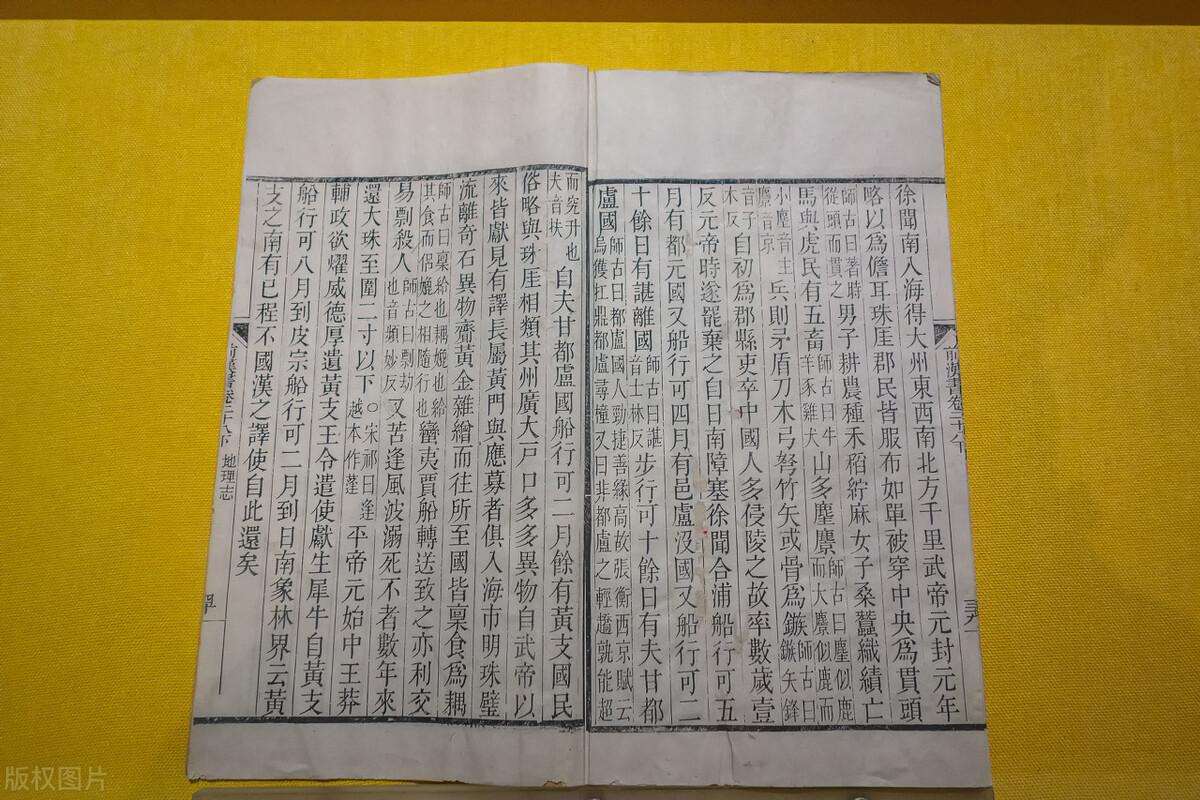 前漢書卷二十八下
徐聞南入海得大州東西南北方千里武帝元封元年
略以爲儋耳珠厓郡民皆服布如單被穿中央爲貫頭
師古曰著時從頭而貫之男子耕農種禾稻紵麻女子桑蠶織績亡
馬與虎民有五畜師古曰牛羊豕雞犬山多麈麖師古曰麈似鹿而大麖似鹿而
小麈音主麖音京兵則矛盾刀木弓弩竹矢或骨爲鏃師古曰鏃矢鋒
音子木反自初爲郡縣吏卒中國人多侵陵之故率數歲壹
反元帝時遂罷棄之自日南障塞徐聞合浦船行可五
月有都元國又船行可四月有邑盧沒國又船行可二
十餘日有諶離國師古曰諶音士林反步行可十餘日有夫甘都
盧國師古曰都盧國人勁捷善緣高故張衡西京賦云烏獲扛鼎都盧尋橦又曰非都盧之輕趫孰能超
而究升也夫音扶自夫甘都盧國船行可二月餘有黃支國民
俗略與珠厓相類其州廣大戶口多多異物自武帝以
來皆獻見有譯長屬黃門與應募者俱入海市明珠璧
流離奇石異物齎黃金雜繒而往所至國皆稟食爲耦
師古曰稟給也耦媲也給其食而侶媲之相隨行也蠻夷賈船轉送致之亦利交
易剽殺人師古曰剽劫也音頻妙反又苦逢風波溺死不者數年來
還大珠至圍二寸以下○宋祁曰逢越本作蓬平帝元始中王莽
輔政欲燿威德厚遺黃支王令遣使獻生犀牛自黃支
船行可八月到皮宗船行可二月到日南象林界云黃
支之南有已程不國漢之譯使自此還矣
前漢書卷二十八下 地理志
版权图片